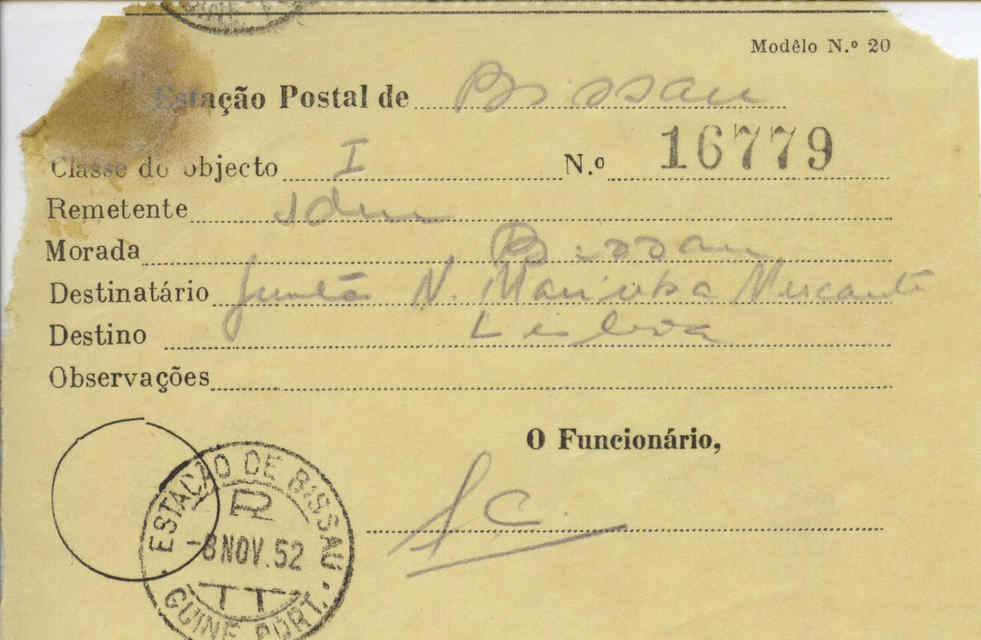 Modêlo N.º 20
Estação Postal de Bissau
Classe do objecto I N.º 16779
Remetente
Morada Bissau
Destinatário Junta N. Marinha Mercante
Destino Lisboa
Observações
O Funcionário,
ESTAÇÃO DE BISSAU
R
-8 NOV. 52
TT
GUINÉ PORT.